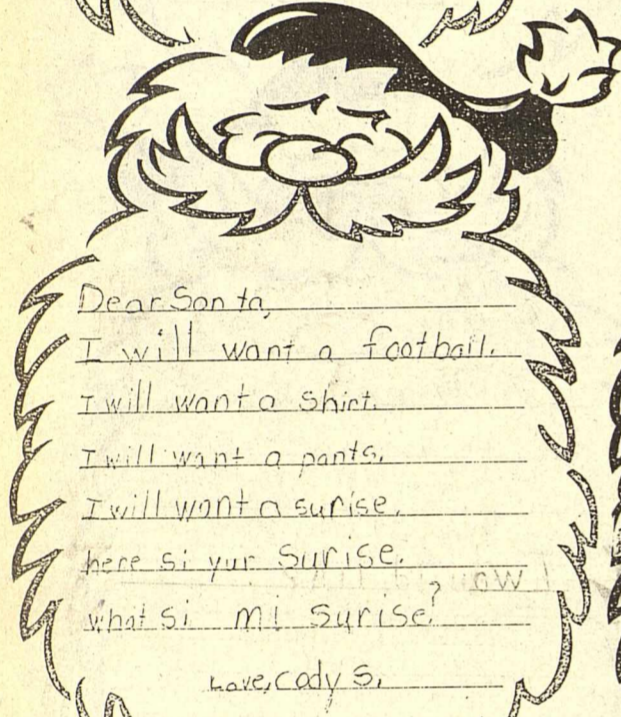 Dear Santa,
I will want a football.
I will want a shirt.
I will want a pants.
I will want a surise.
here si yur surise.
what si mi surise?
Love, Cody S.